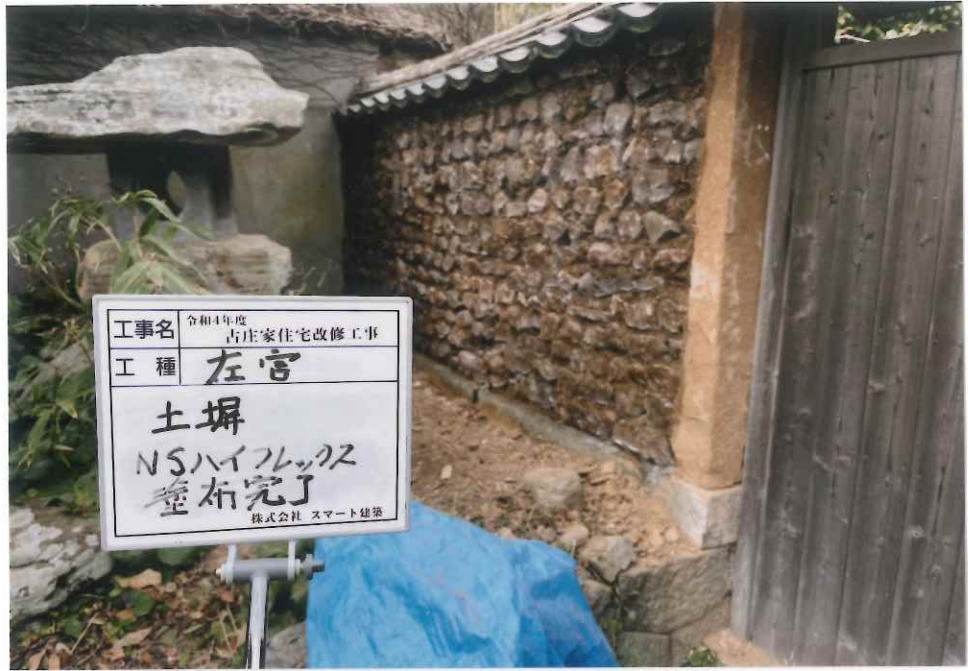 工事名 令和4年度
古庄家住宅改修工事
工種 左官
土塀
NSハイフレックス
塗布完了
株式会社 スマート建築